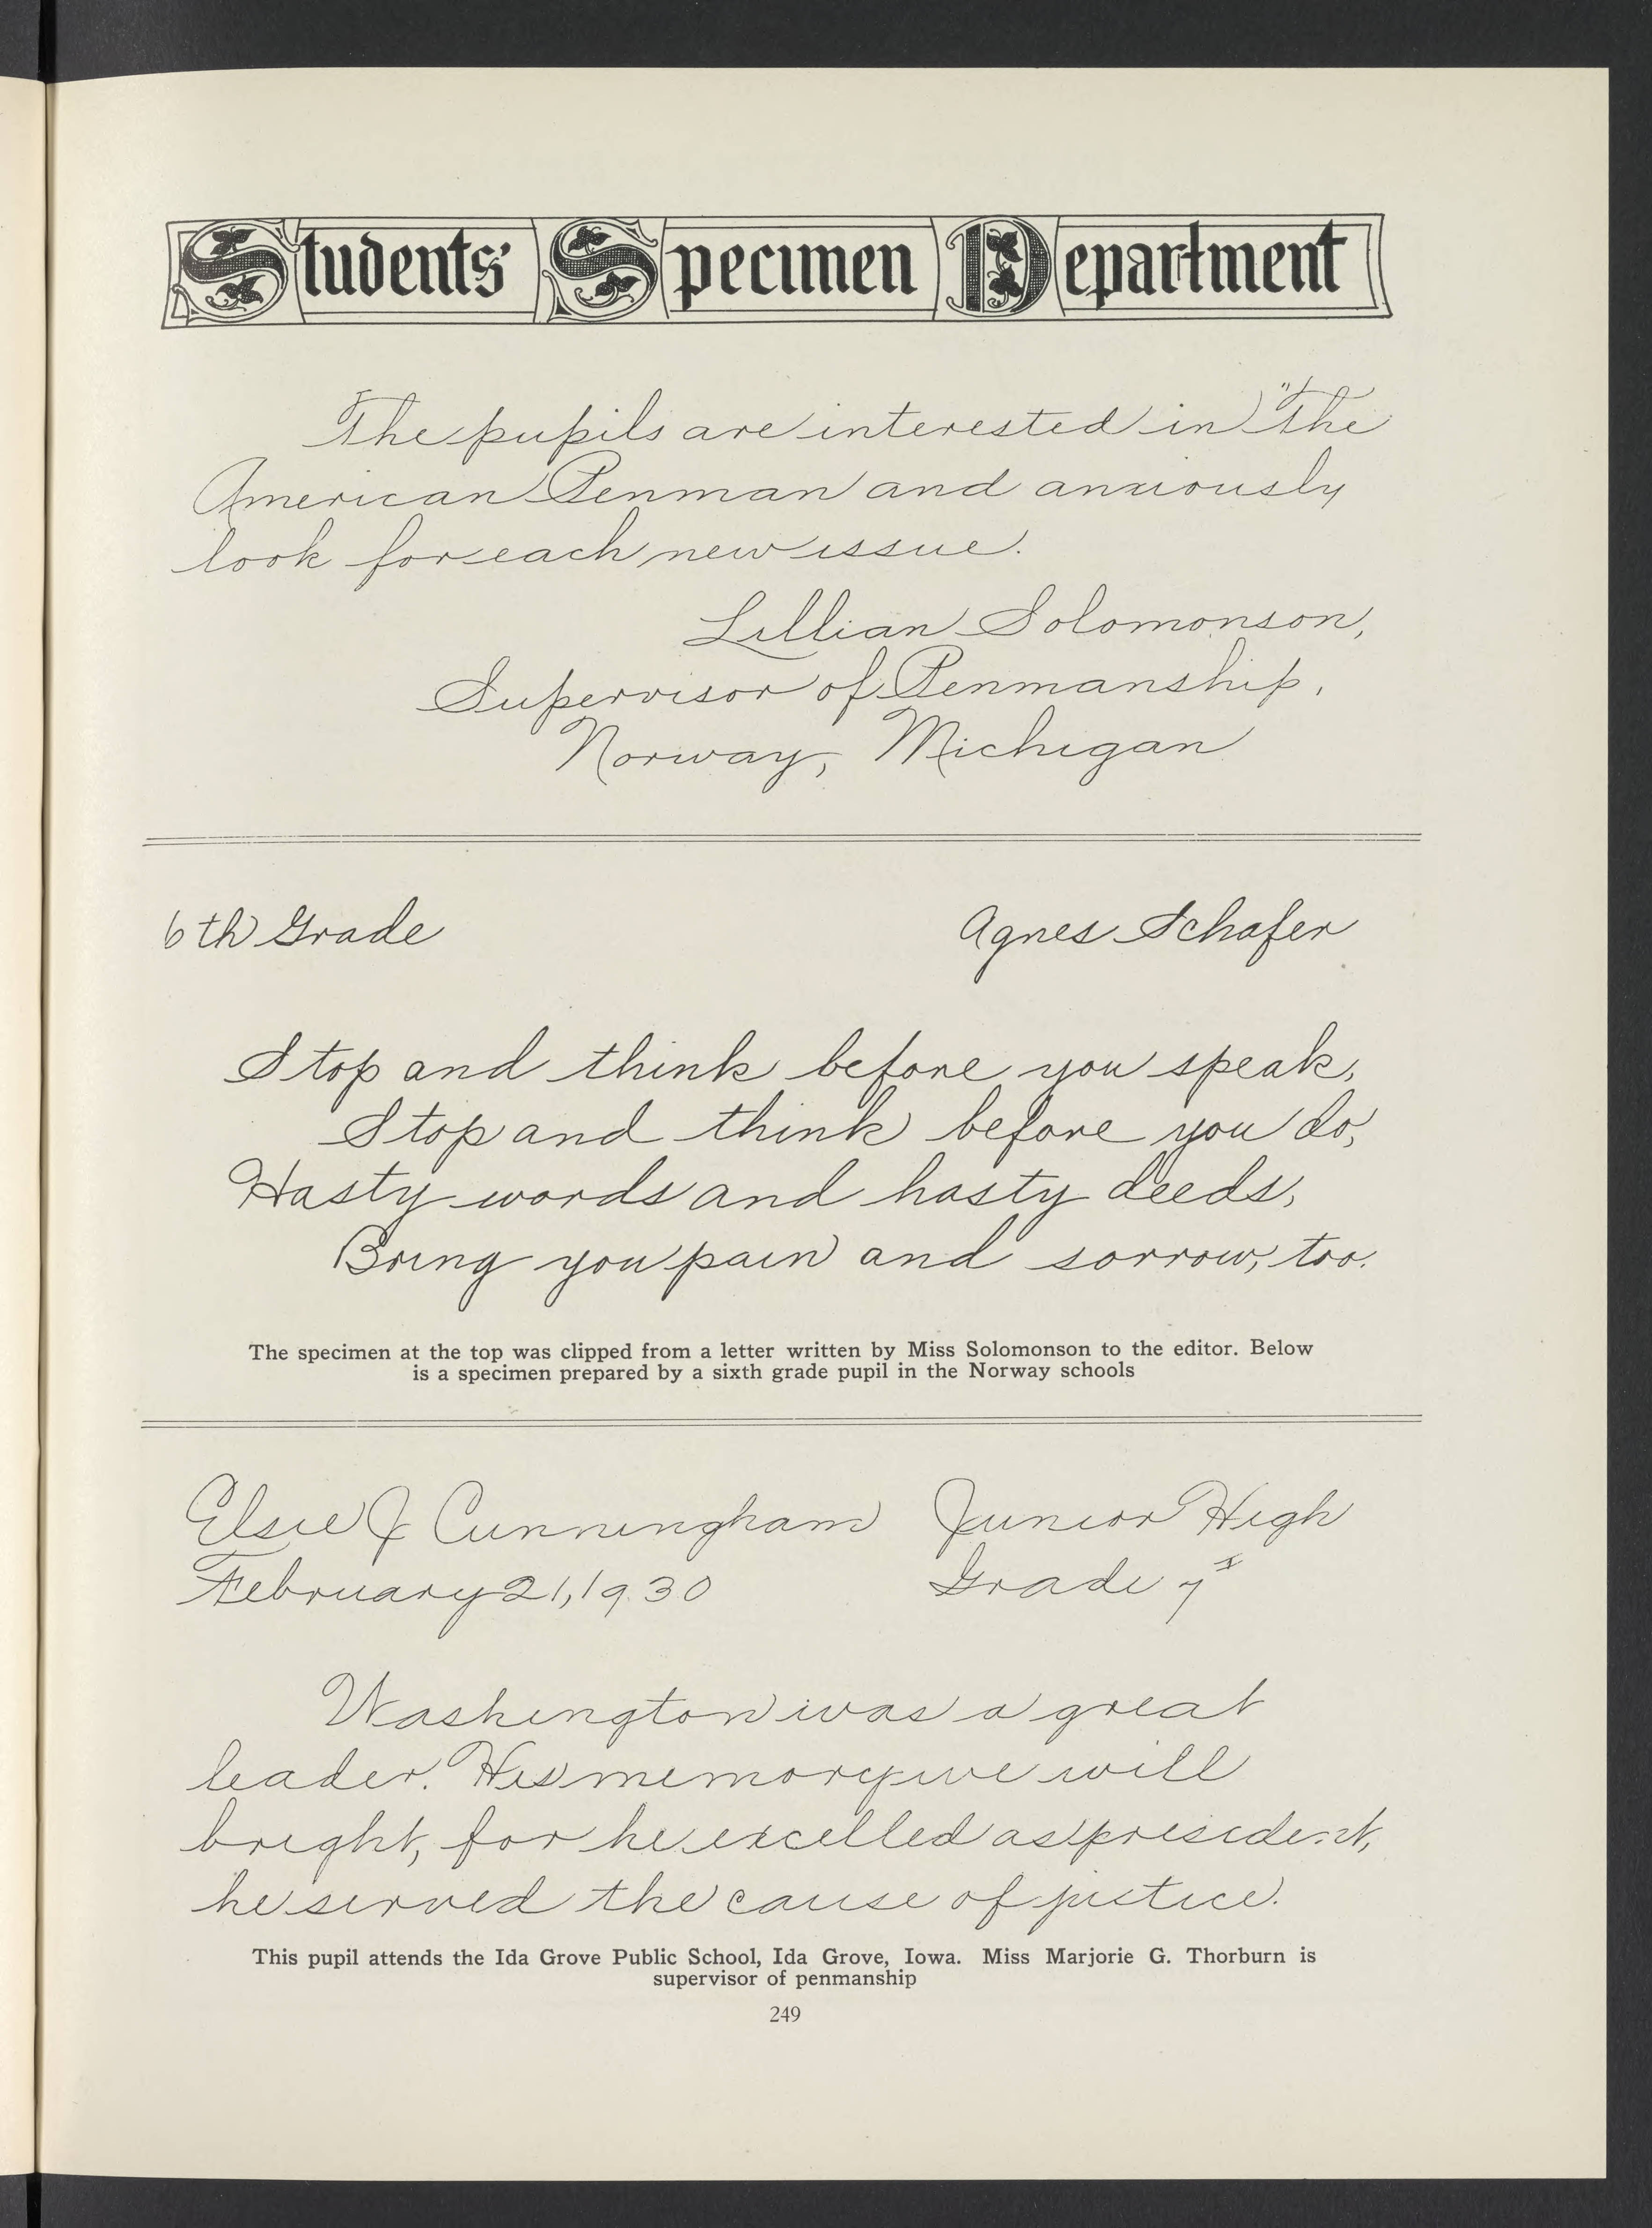 Students' Specimen Department
The pupils are interested in "The
American Penman and anxiously
look for each new issue.
Lillian Solomonson,
Supervisor of Penmanship,
Norway, Michigan
6th Grade Agnes Schafer
Stop and think before you speak,
Stop and think before you do,
Hasty words and hasty deeds,
Bring you pain and sorrow, too.
The specimen at the top was clipped from a letter written by Miss Solomonson to the editor. Below
is a specimen prepared by a sixth grade pupil in the Norway schools
Elsie J Cunningham Junior High
February 21, 1930 Grade 7
Washington was a great
leader. His memory we will
bright, for he excelled as president,
he served the cause of justice.
This pupil attends the Ida Grove Public School, Ida Grove, Iowa. Miss Marjorie G. Thorburn is
supervisor of penmanship
249